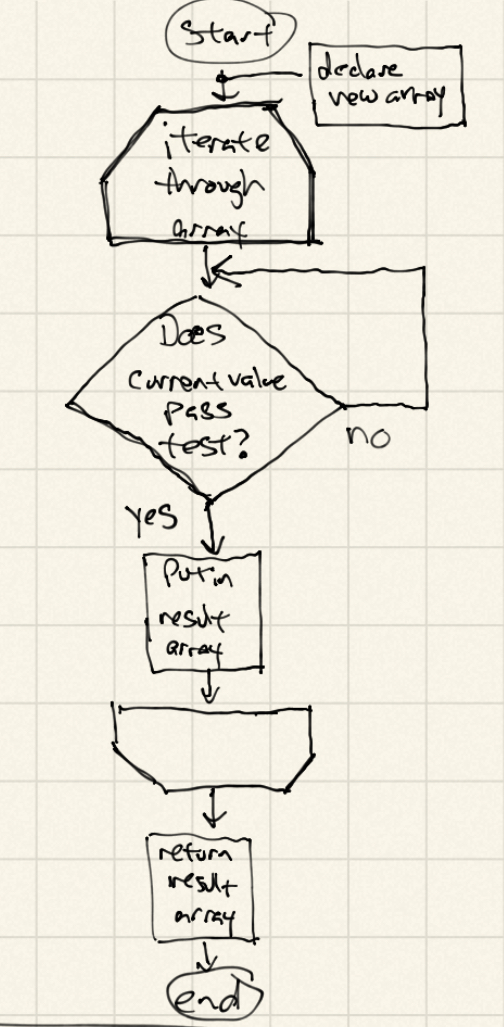 Start
declare
new array
iterate
through
array
Does
Current value
pass
test?
no
yes
Put in
result
array
return
result
array
end